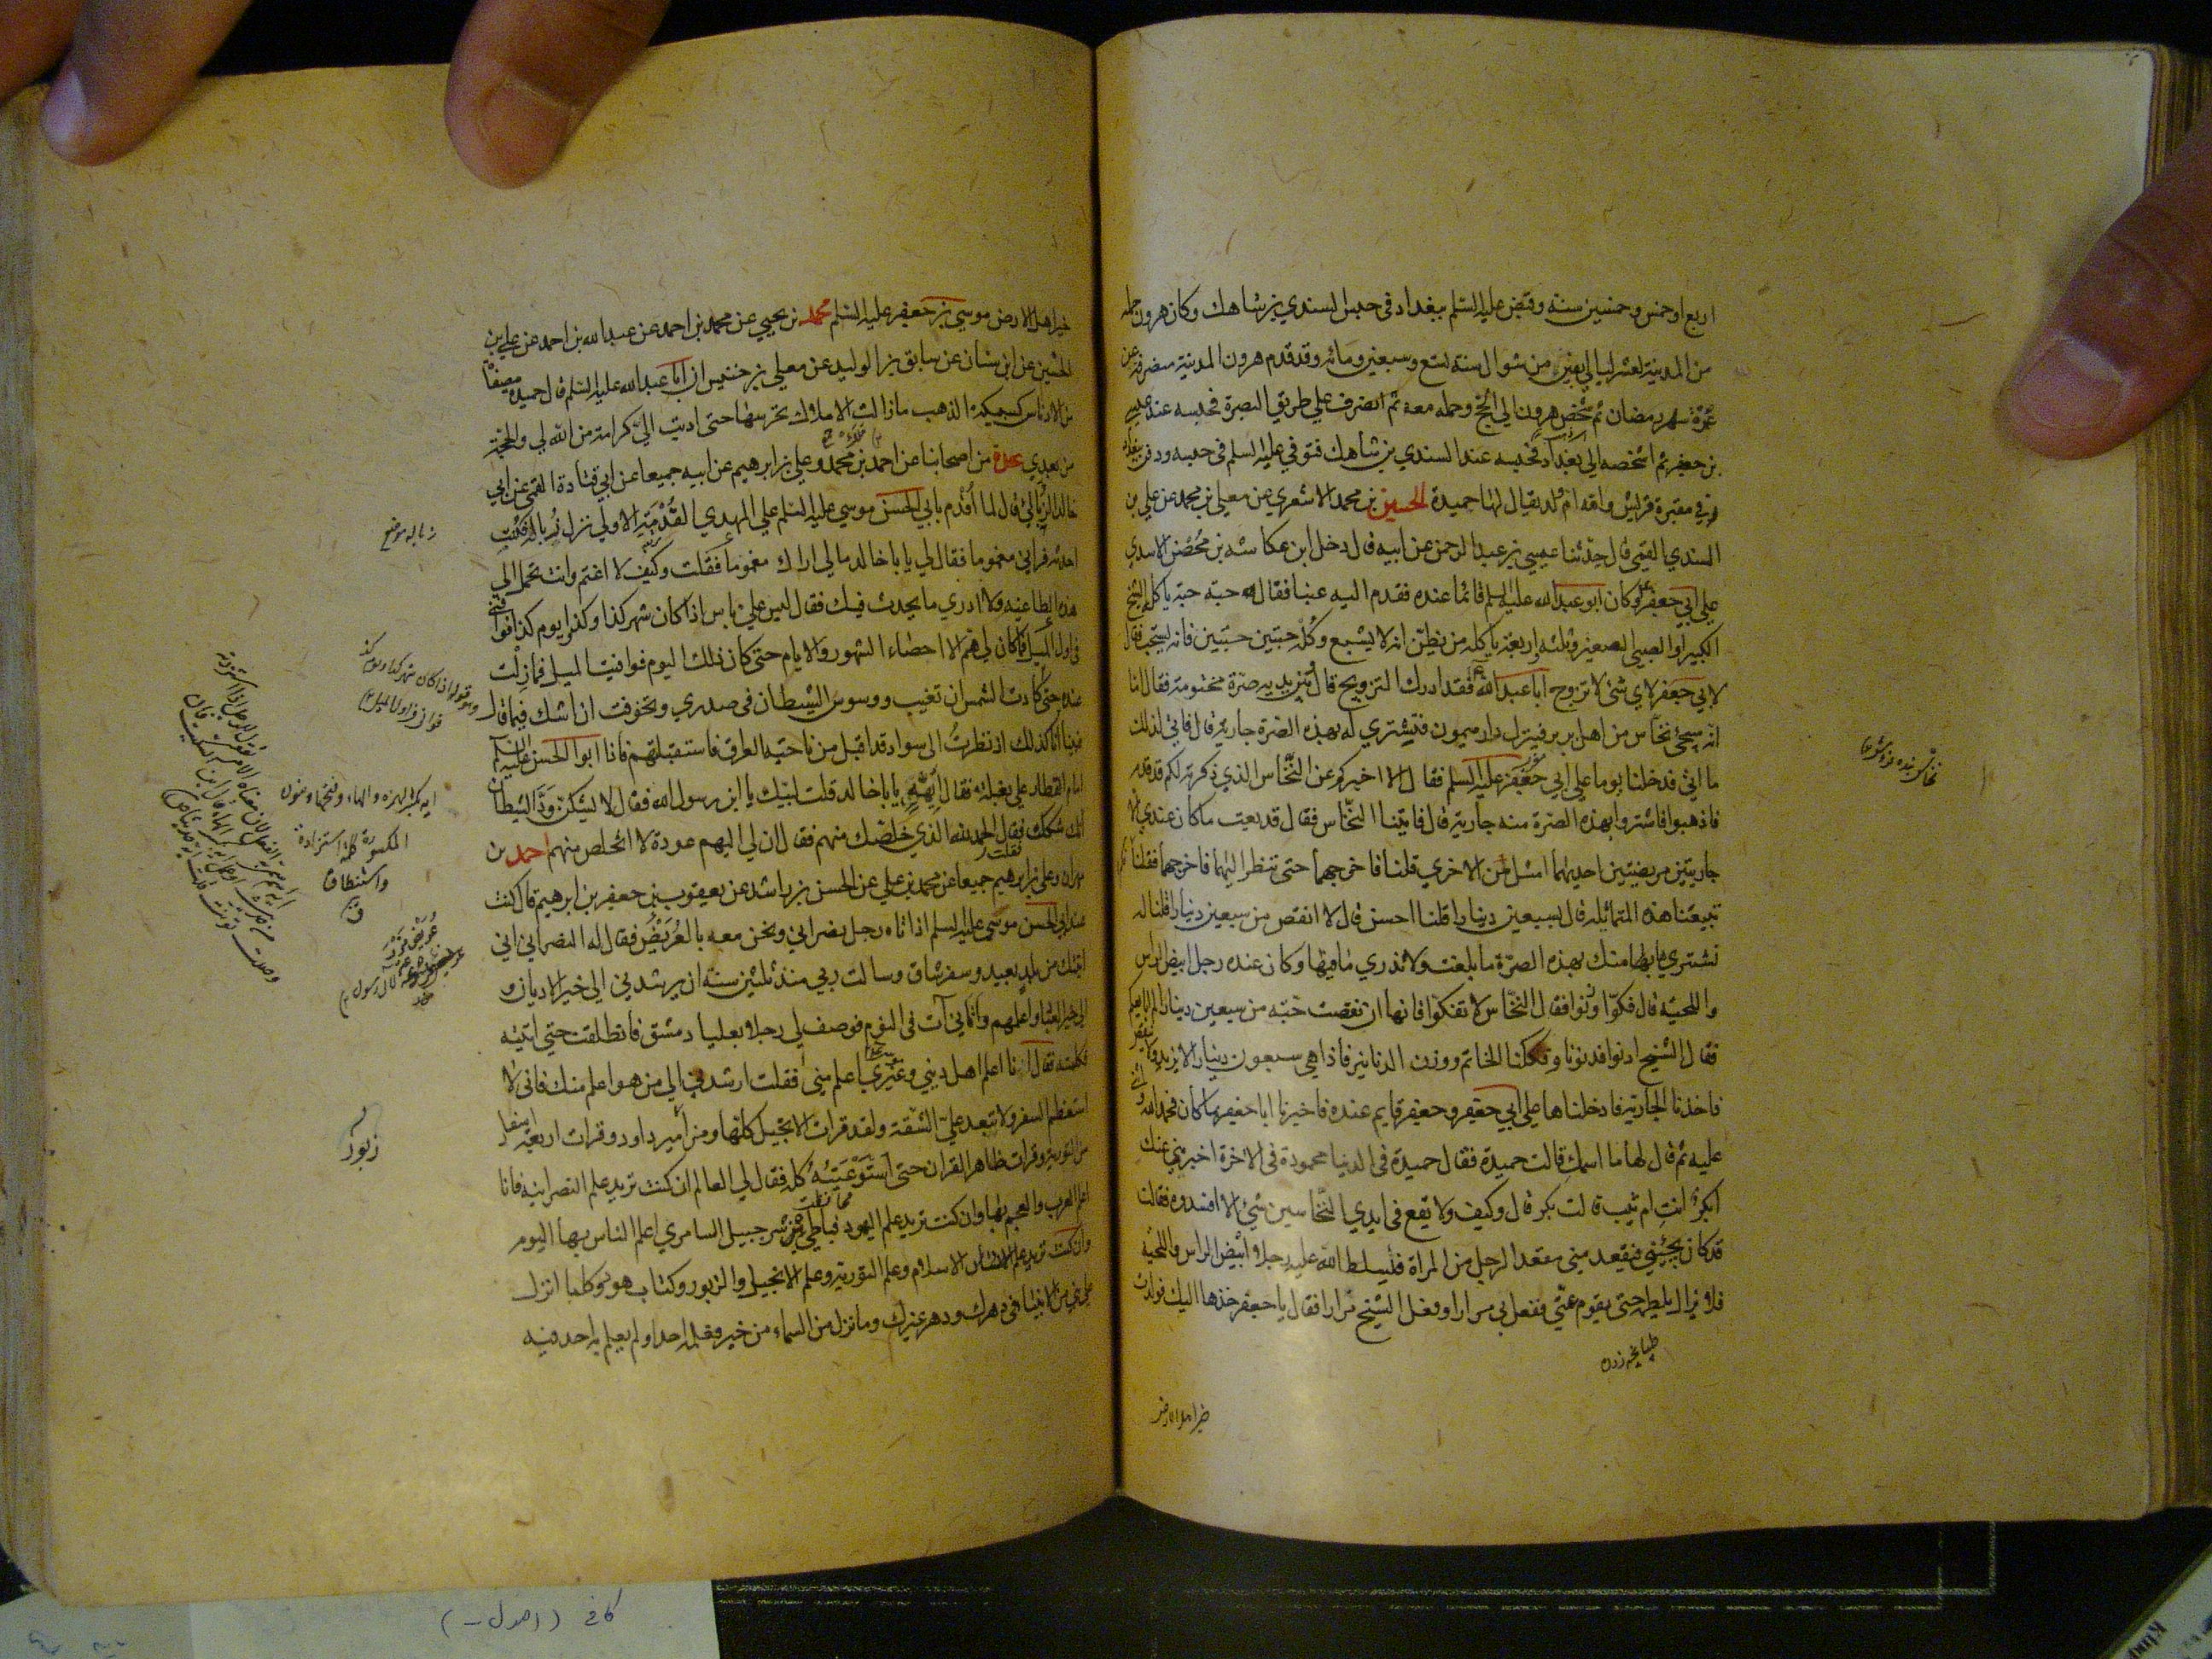 اربع او خمس وخمسين سنة وقبض عليه السلم ببغداد في حبس السندي بن شاهك وكان هرون حمله
من المدينة لعشر ليال بقين من شوال سنة تسع وسبعين ومائه وقد قدم هرون المدينة منصرفه من
عمرة شهر رمضان ثم شخص هرون الى الحج وحمله معه ثم انصرف على طريق البصرة فحبسه عند عيسى
بن جعفر ثم اشخصه الى بغداد فحبسه عند السندي بن شاهك فتوفي عليه السلم في حبسه ودفن ببغداد
في مقبرة قريش وامه ام ولد يقال لها حميدة الحسين بن محمد الاشعري عن معلى بن محمد عن علي بن
السندي القمي قال حدثنا عيسى بن عبد الرحمن عن ابيه قال دخل ابن عكاشه بن محصن الاسدي
على ابي جعفر وكان ابو عبد الله عليه السلم قائما عنده فقدم اليه عنبا فقال حبة حبة ياكله الشيخ
الكبير او الصبي الصغير وثلثه واربعة ياكله من يظن انه لا يشبع وكله حبتين حبتين فانه يستحب فقال
لابي جعفر لاي شئ لا تزوج ابا عبد الله فقد ادرك التزويج قال وبين يديه صرة مختومة فقال اما
انه سيجئ نخاس من اهل بربر فينزل دار ميمون فنشتري له بهذه الصرة جارية قال فاتى لذلك
ما اتى فدخلنا يوما على ابي جعفر عليه السلم فقال الا اخبركم عن النخاس الذي ذكرته لكم قد قدم
فاذهبوا فاشتروا بهذه الصرة منه جارية قال فاتينا النخاس فقال قد بعت ما كان عندي الا
جاريتين مريضتين احديهما امثل من الاخرى قلنا فاخرجهما حتى ننظر اليهما فاخرجهما فقلنا
تبيعنا هذه المتماثله قال بسبعين دينارا قلنا احسن قال لا انقص من سبعين دينارا قلنا له
نشتريها منك بهذه الصرة ما بلغت ولا ندري ما فيها وكان عنده رجل ابيض الراس
واللحيه قال فكوا وزنوا فقال النخاس لا تفكوا فانها ان نقصت حبه من سبعين دينارا لم ابايعكم
فقال الشيخ ادنوا فدنونا وفككنا الخاتم ووزنا الدنانير فاذا هي سبعون دينارا لا يزيد ولا ينقص
فاخذنا الجارية فادخلناها على ابي جعفر وجعفر قايم عنده فاخبرنا ابا جعفر بما كان فحمد الله واثنى
عليه ثم قال لها ما اسمك قالت حميدة فقال حميدة في الدنيا محمودة في الاخرة اخبريني عنك
ابكر انت ام ثيب قالت بكر قال وكيف ولا يقع في ايدي النخاسين شئ الا افسدوه فقالت
قد كان يجيئني فيقعد مني مقعد الرجل من المراة فيسلط الله عليه رجلا ابيض الراس واللحيه
فلا يزال يلطمه حتى يقوم عني ففعل بي مرارا وفعل الشيخ مرارا فقال يا جعفر خذها اليك فولدت
طپانچه زدن
خير اهل الارض
خير اهل الارض موسى بن جعفر عليه السلم محمد بن يحيى عن محمد بن احمد عن عبد الله بن احمد عن علي بن
الحسين عن ابن سنان عن سابق بن الوليد عن معلى بن خنيس ان ابا عبد الله عليه السلم قال حميدة مصفاة
من الادناس كسبيكة الذهب ما زالت الاملاك تحرسها حتى اديت الي كرامة من الله لي والحجة
من بعدي عدة من اصحابنا عن احمد بن محمد وعلي بن ابرهيم عن ابيه جميعا عن ابي قتادة القمي عن ابي
خالد الزبالي قال لما اقدم بابي الحسن موسى عليه السلم على المهدي القدمة الاولى نزل زبالة فكنت
احدثه فراني مغموما فقال لي يا با خالد ما لي اراك مغموما فقلت وكيف لا اغتم وانت تحمل الى
هذه الطاغيه ولا ادري ما يحدث فيك فقال ليس علي باس اذا كان شهر كذا وكذا ويوم كذا فوافني
في اول الميل فما كان لي هم الا احصاء الشهور والايام حتى كان ذلك اليوم فوافيت الميل فما زلت
عنده حتى كادت الشمس ان تغيب ووسوس الشيطان في صدري وتخوفت ان اشك فيما قال
فبينا انا كذلك اذ نظرت الى سواد قد اقبل من ناحيه العراق فاستقبلتهم فاذا ابو الحسن عليه السلم
امام القطار على بغلة فقال ايه يا با خالد قلت لبيك يا ابن رسول الله فقال لا تشكن ود الشيطان
انك شككت فقلت الحمد لله الذي خلصك منهم فقال ان لي اليهم عودة لا اتخلص منهم احمد بن
مهران وعلي بن ابرهيم جميعا عن محمد بن علي عن الحسن بن راشد عن يعقوب بن جعفر بن ابرهيم قال كنت
عند ابي الحسن موسى عليه السلم اذ اتاه رجل نصراني ونحن معه بالعريض فقال له النصراني اني
اتيتك من بلد بعيد وسفر شاق وسالت ربي منذ ثلثين سنة ان يرشدني الى خير الاديان و
الى خير العباد واعلمهم واتاني آت في النوم فوصف لي رجلا بعليا دمشق فانطلقت حتى اتيته
فكلمته فقال انا اعلم اهل ديني وغيري اعلم مني فقلت ارشدني الى من هو اعلم منك فاني لا
استعظم السفر ولا تبعد علي الشقة ولقد قرات الانجيل كلها ومزامير داود وقرات اربعة اسفار
من التورية وقرات ظاهر القران حتى استوعبته كله فقال لي العالم ان كنت تريد علم النصرانيه فانا
اعلم العرب والعجم بها وان كنت تريد علم اليهود فباطي بن شرجبيل السامري اعلم الناس بها اليوم
وان كنت تريد علم الاسلام وعلم التورية وعلم الانجيل والزبور وكتاب هود وكلما انزل
على نبي من الانبيا في دهرك ودهر غيرك وما نزل من السماء من خير فعلمه احد او لم يعلم به احد فيه
زباله موضع
ايه بكسر الهمزه والهاء وفتحها ومنون
المكسورة كلمة استزادة
واستنطاق
ق
زبور
كافي (اصول –)